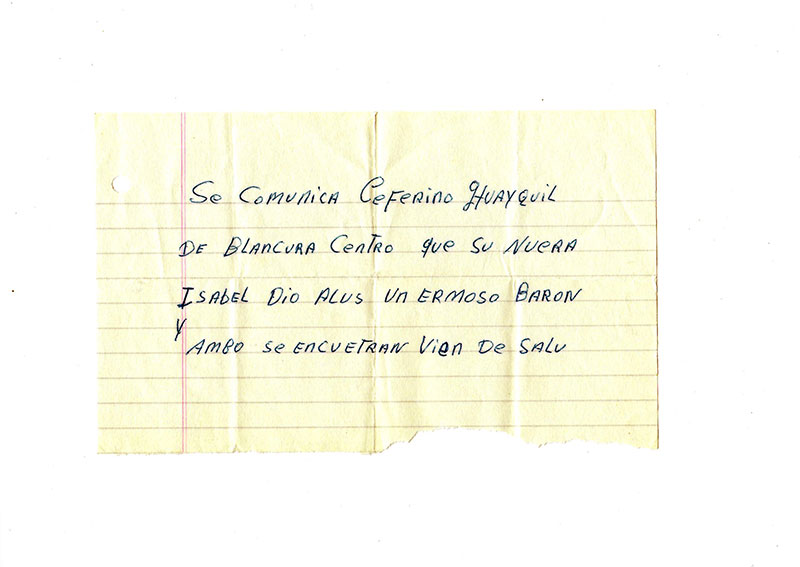 Se Comunica Ceferino Huayquil
De Blancura Centro que su nuera
Isabel Dio Alus un ermoso Baron
y
Ambo se encuetran Vien De salu